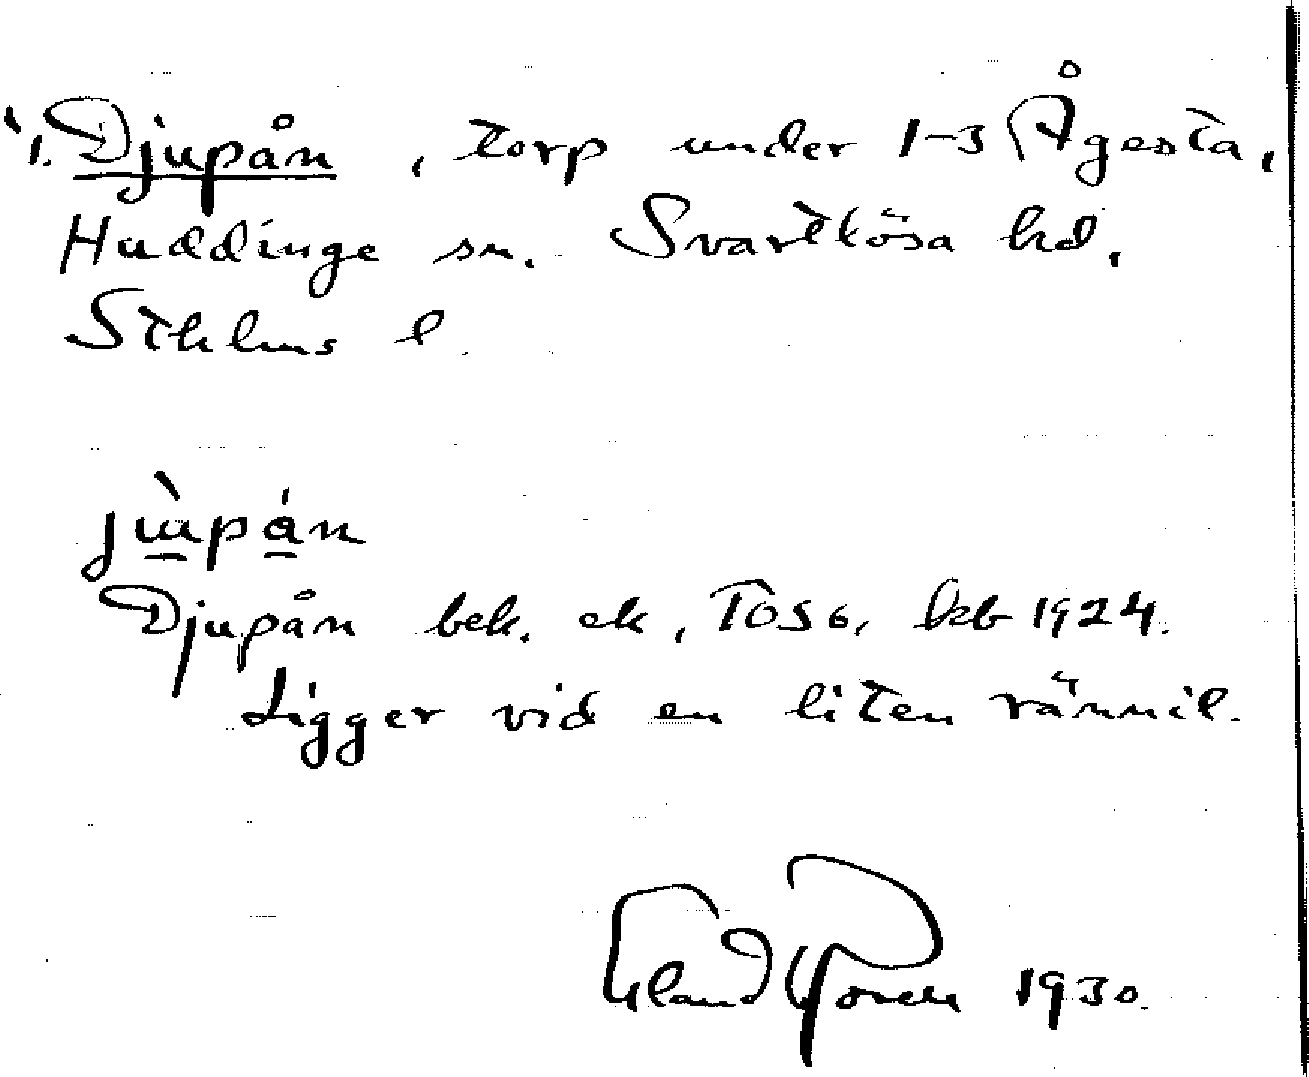 1. Djupån, torp under 1-3 Ågesta,
Huddinge sn. Svartlösa hd,
Sthlms l.
Djupån bek. ek, kb 1924.
Ligger vid en liten rännil.
1930.